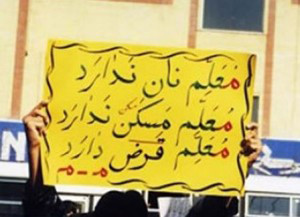 معلم نان ندارد
معلم مسکن ندارد
معلم قرض دارد
م-م